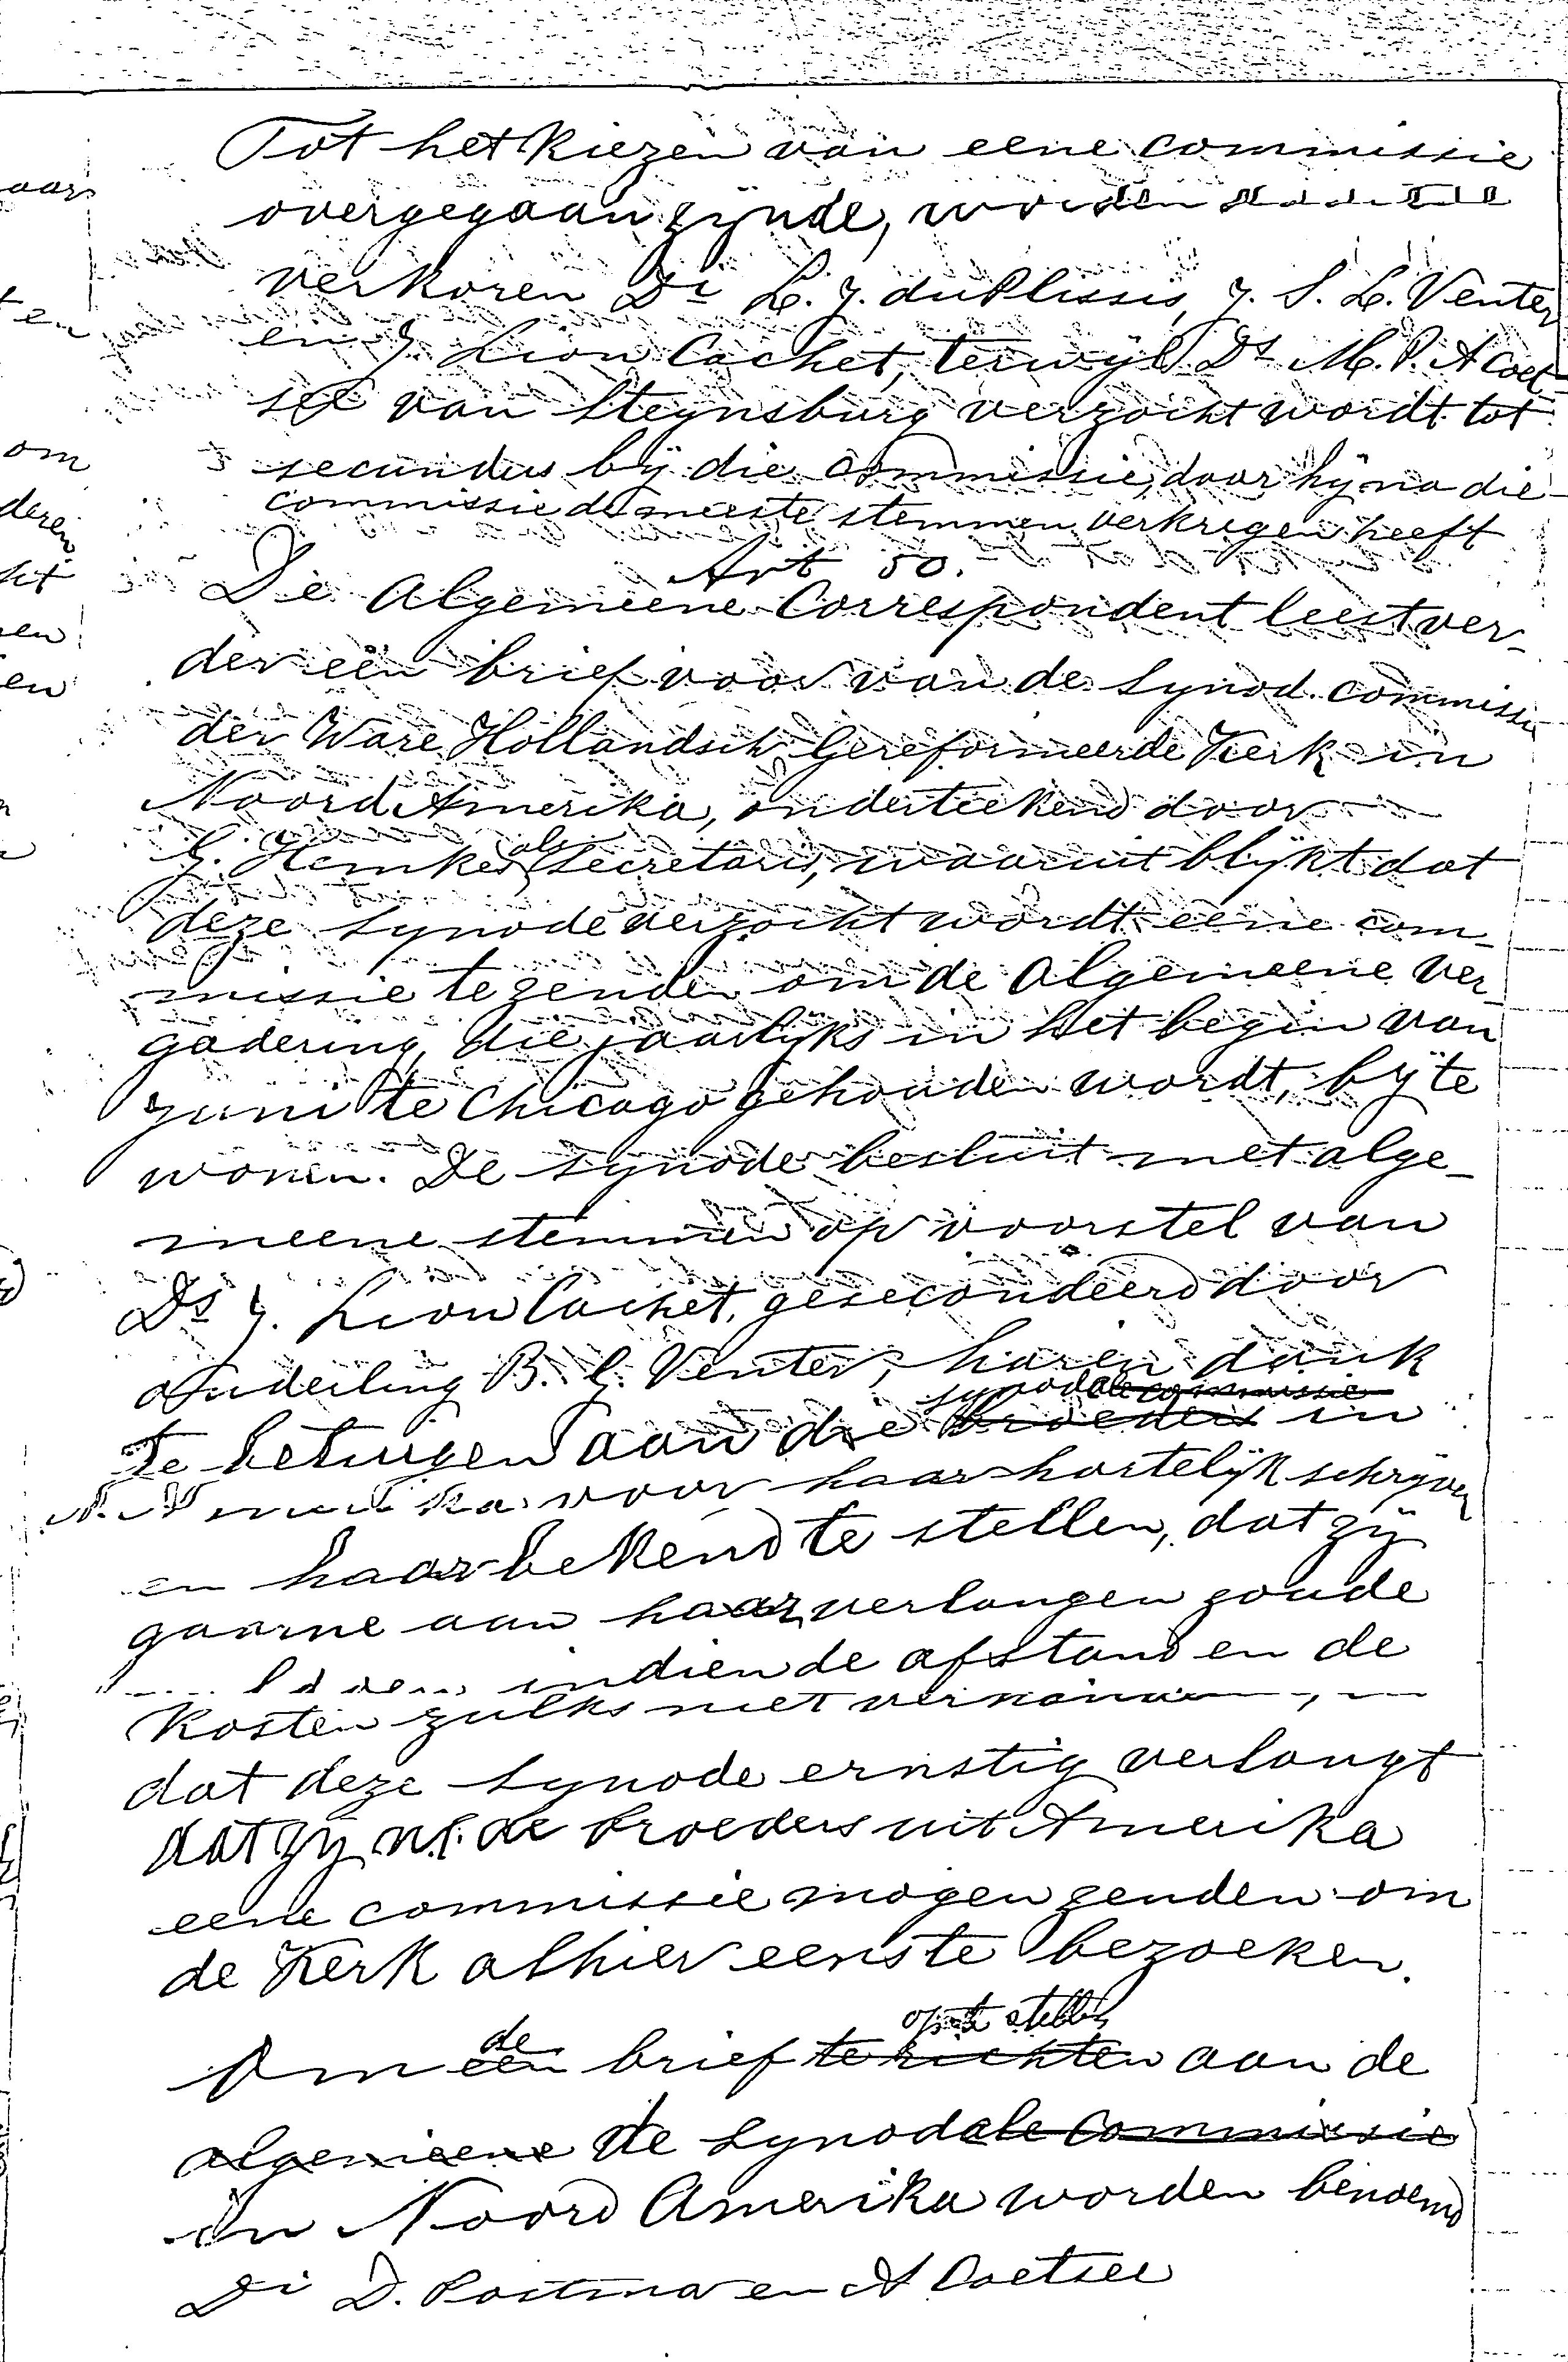 Tot het kiezen van eene commissie
overgegaan zijnde, worden
verkoren Di L. J. du Plessis, J. S. L. Venter
en J. Lion Cachet, terwijl Ds M. P. A Coet-
see van Steynsburg verzocht wordt tot
secundus bij die commissie, daar hij na die
commissie de meeste stemmen verkregen heeft
Art 50.
De Algemeene Correspondent leest ver-
der een brief voor van de Synod. commissie
der Ware Hollandsch Gereformeerde Kerk in
Noord Amerika, onderteekend door
G. Hemkes als Secretaris, waaruit blijkt dat
deze synode verzocht wordt eene com-
missie te zenden om de Algemeene Ver-
gadering, die jaarlijks in het begin van
Juni te Chicago gehouden wordt, bij te
wonen. De synode besluit met alge-
meene stemmen op voorstel van
Ds J. Lion Cachet, gesecondeerd door
ouderling B. J. Venter, haren dank
synodale commissie
te betuigen aan die broeders in
N. Amerika voor haar hartelijk schrijven
en haar bekend te stellen, dat zij
gaarne aan haar verlangen zoude
indien de afstand en de
kosten zulks niet
dat deze Synode ernstig verlangt
dat zij nl. de broeders uit Amerika
eene commissie mogen zenden om
de Kerk alhier eens te bezoeken.
de op te stellen
Om een brief te richten aan de
algemeene de Synodale Commissie
in Noord Amerika worden benoemd
Di D. Postma en A Coetsee
aar
ten
om
deren
ht
en
en